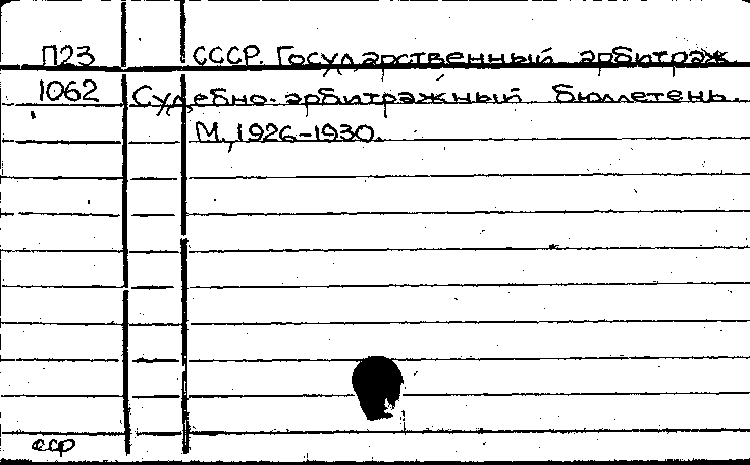 П23 СССР. Государственный арбитраж
1062 Судебно-арбитражный бюллетень.
М., 1926-1930.
еср